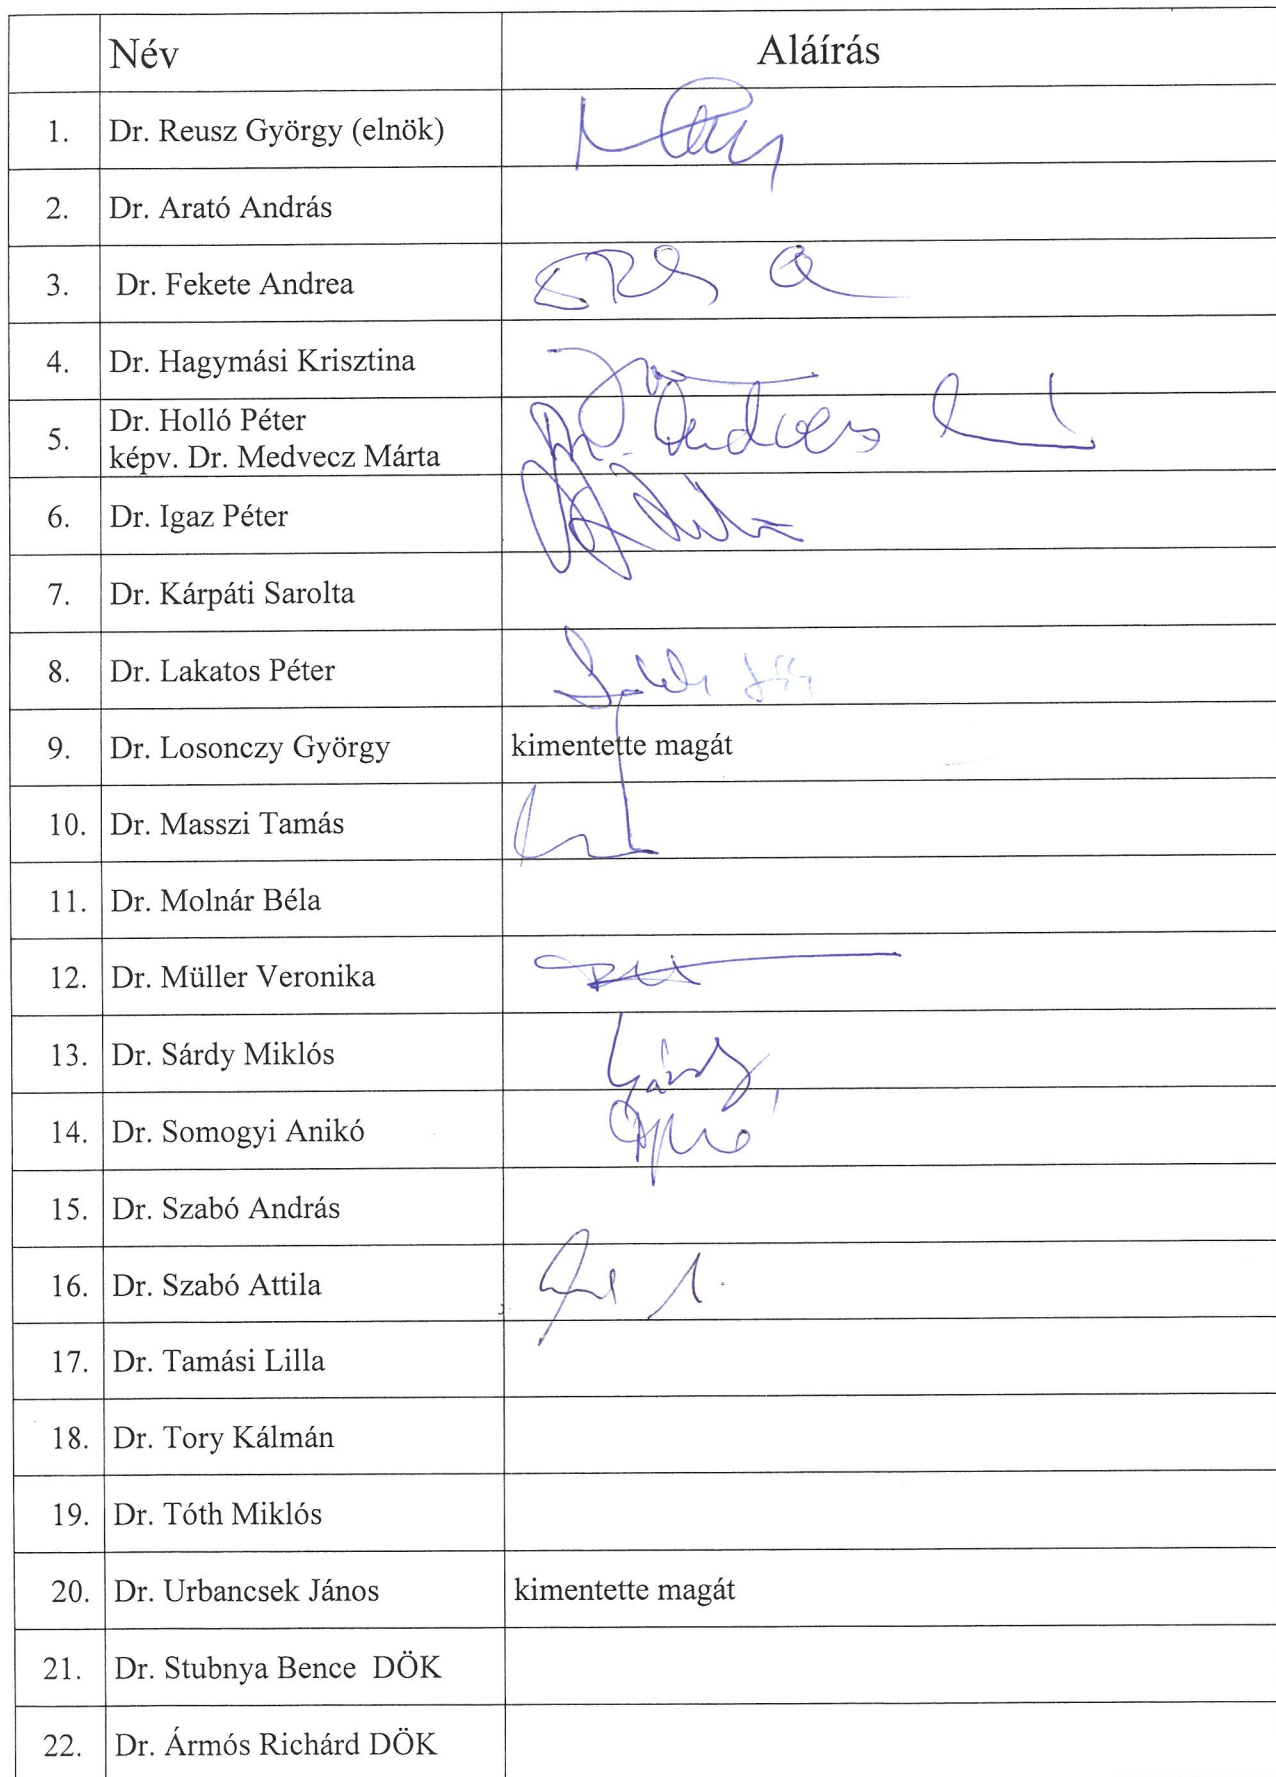 Név Aláírás
1. Dr. Reusz György (elnök)
2. Dr. Arató András
3. Dr. Fekete Andrea
4. Dr. Hagymási Krisztina
5. Dr. Holló Péter
képv. Dr. Medvecz Márta
6. Dr. Igaz Péter
7. Dr. Kárpáti Sarolta
8. Dr. Lakatos Péter
9. Dr. Losonczy György kimentette magát
10. Dr. Masszi Tamás
11. Dr. Molnár Béla
12. Dr. Müller Veronika
13. Dr. Sárdy Miklós
14. Dr. Somogyi Anikó
15. Dr. Szabó András
16. Dr. Szabó Attila
17. Dr. Tamási Lilla
18. Dr. Tory Kálmán
19. Dr. Tóth Miklós
20. Dr. Urbancsek János kimentette magát
21. Dr. Stubnya Bence DÖK
22. Dr. Ármós Richárd DÖK